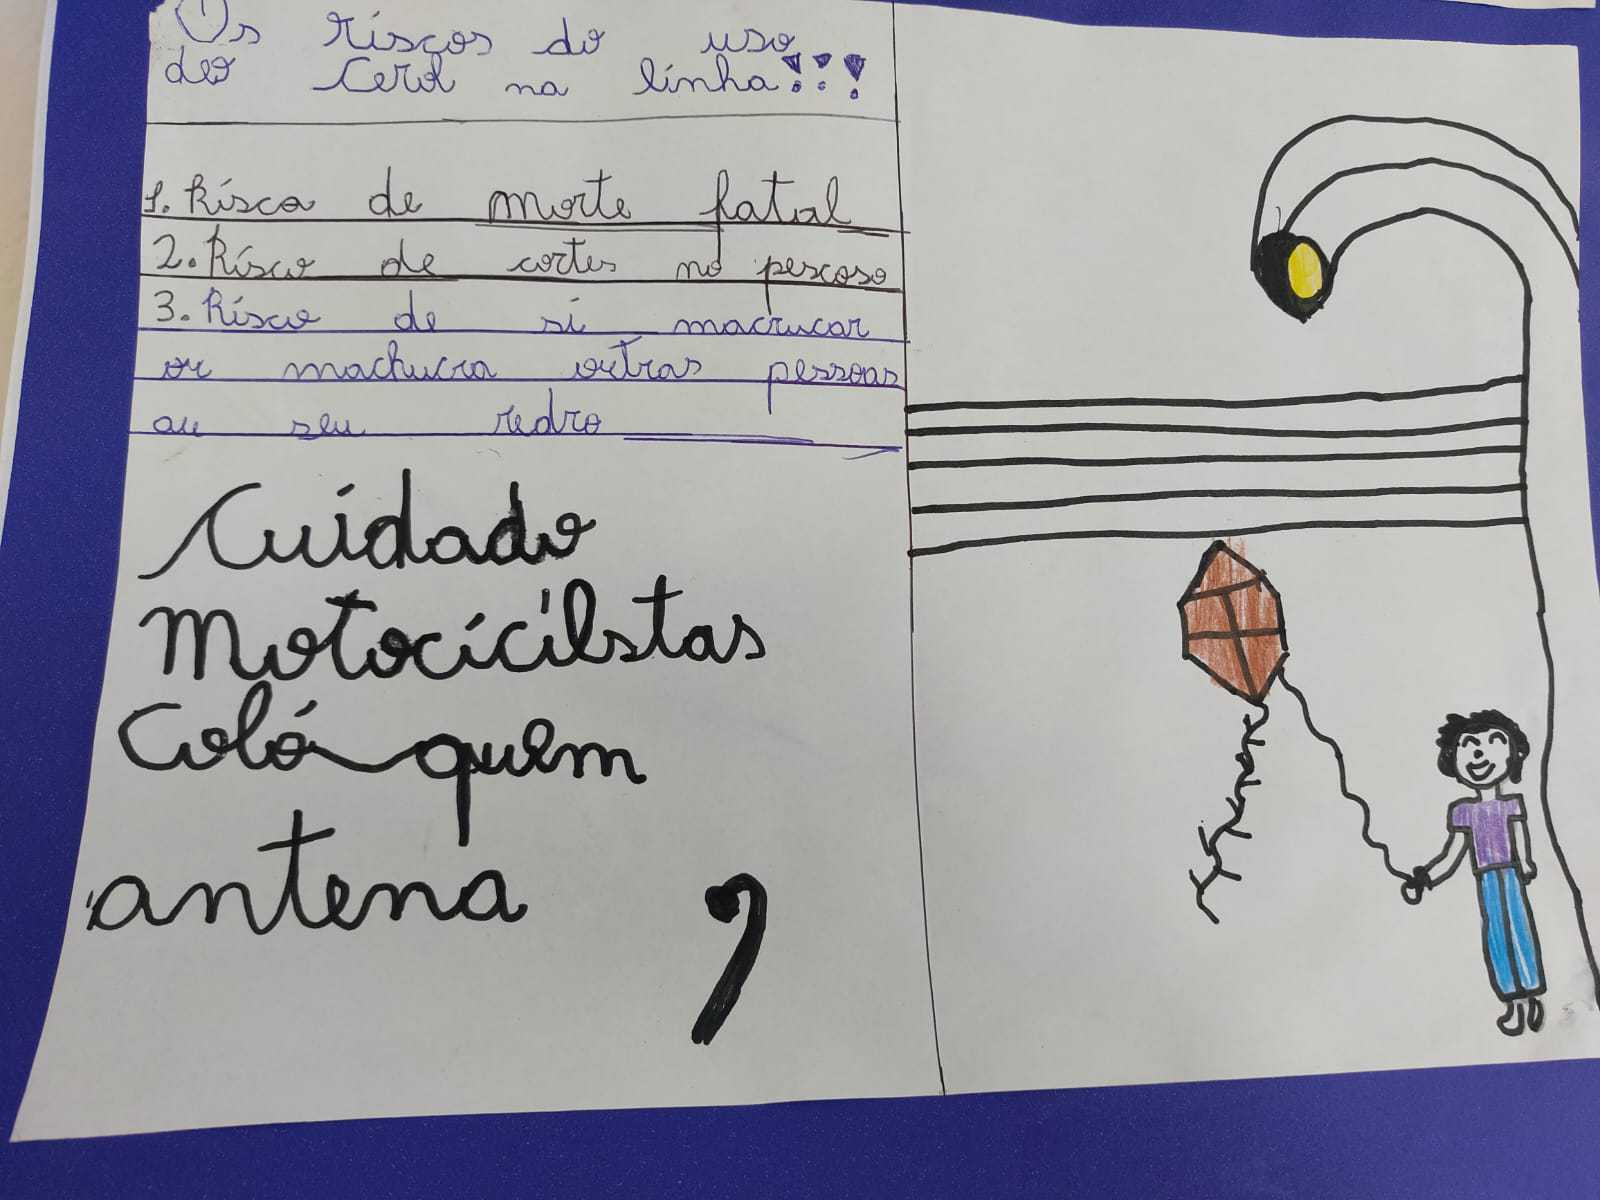 Os riscos do uso
do cerol na linha!!!
1. Risco de morte fatal
2. Risco de cortes no pescoso
3. Risco de si macrucar
or machucra outras pessoas
au seu redro
Cuidado
Motocicilstas
Coló quem
antena